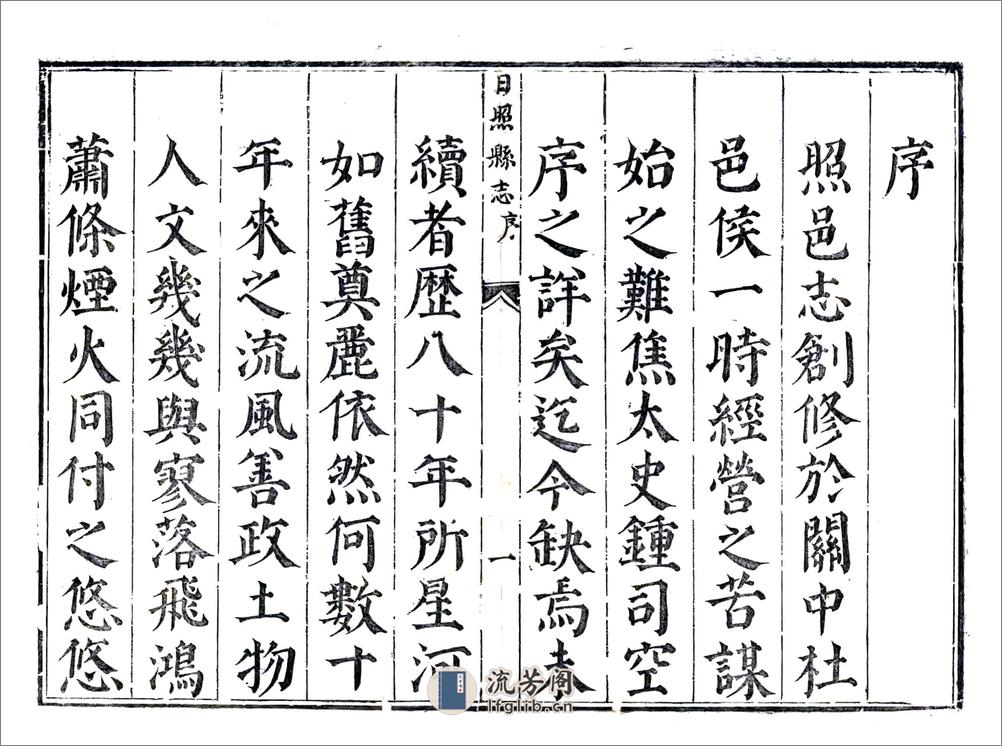 序
照邑志創修於關中杜
邑侯一時經營之苦謀
始之難焦太史鍾司空
序之詳矣迄今缺焉未
日照縣志序
一
續者歷八十年所星河
如舊奠麗依然何數十
年來之流風善政土物
人文幾幾與寥落飛鴻
蕭條煙火同付之悠悠
流芳阁
lfglib.cn